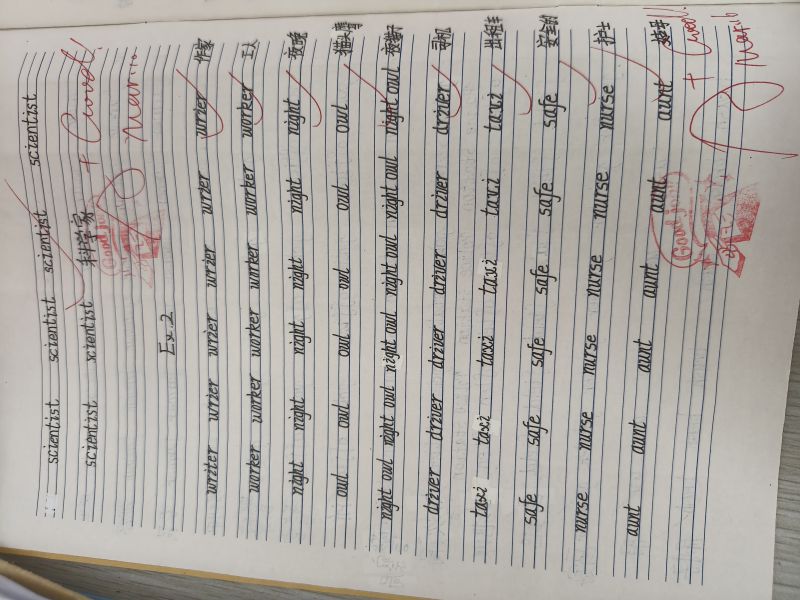 scientist scientist scientist scientist
scientist scientist 科学家 + Good!
Good job
Ex.2
writer wrier wrier wrier wrier 作家
worker worker worker worker worker 工人
night night night night night 夜晚
owl owl owl owl owl 猫头鹰
night owl night owl night owl night owl night owl 夜猫子
driver driver driver driver driver 司机
taxi taxi taxi taxi taxi 出租车
safe safe safe safe safe 安全的
nurse nurse nurse nurse nurse 护士
aunt aunt aunt aunt aunt
+ Good!
Good job